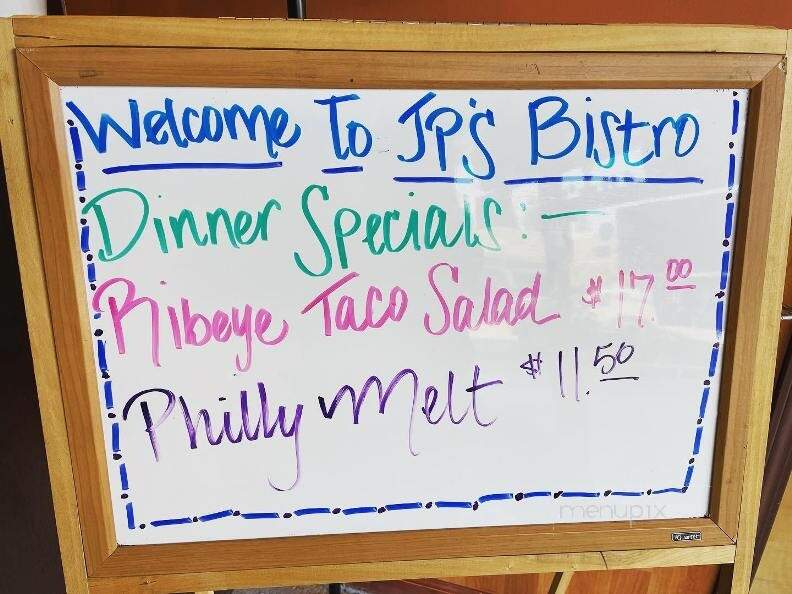 Welcome To JP's Bistro
Dinner Specials: —
Ribeye Taco Salad $17.00
Philly Melt $11.50
menupix